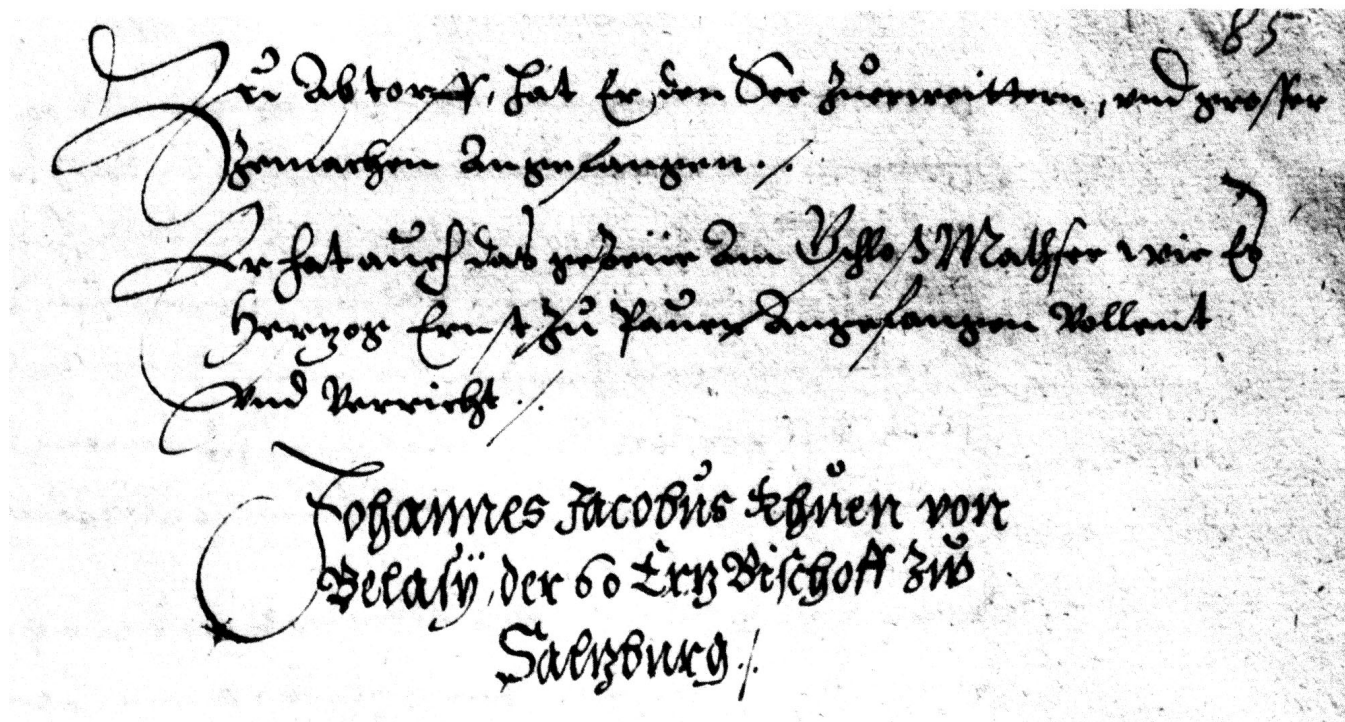 85
Zu Abtorff, hat Er den See zuerweittern, und grosser
Zemachen Angefangen ./.
Er hat auch das gepeü Am Schloß Mathsee wie Es
Hertzog Ernst Zu Payer Angefangen Vollent
Und Verricht ./.
Johannes Jacobus Khuen von
Belasÿ, der 60 Ertz Bischoff Zů
Saltzburg ./.